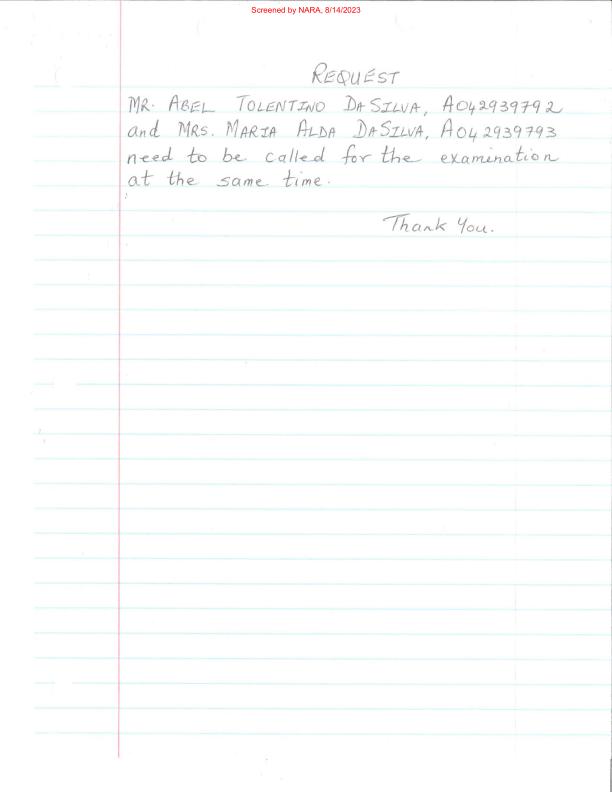 Screened by NARA, 8/14/2023
REQUEST
MR. ABEL TOLENTINO DASILVA, A042939792
and MRS. MARIA ALDA DASILVA, A042939793
need to be called for the examination
at the same time.
Thank You.